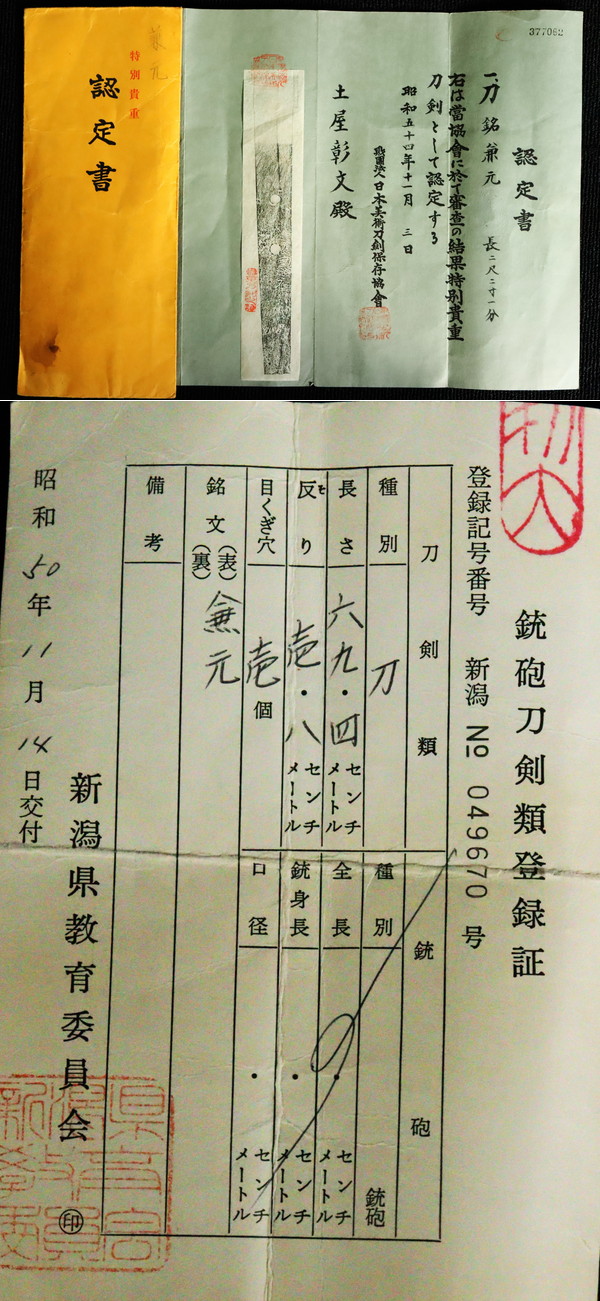 特別貴重
認定書
兼元
377062
認定書
一、刀 銘 兼元 長二尺二寸一分
右は當協會に於て審査の結果特別貴重
刀剣として認定する
昭和五十四年十一月三日
財團法人日本美術刀剣保存協會
土屋彰文殿
銃砲刀剣類登録証
登録記号番号 新潟 № 049670 号
刀剣類
種別 刀
長さ 六九・四 センチメートル
反り 壱・八 センチメートル
目くぎ穴 壱個
銘文 (表) 兼元
(裏)
備考
銃砲
種別 銃砲
全長 ・ センチメートル
銃身長 ・ センチメートル
口径 ・ センチメートル
新潟県教育委員会 ㊞
昭和50年11月14日交付